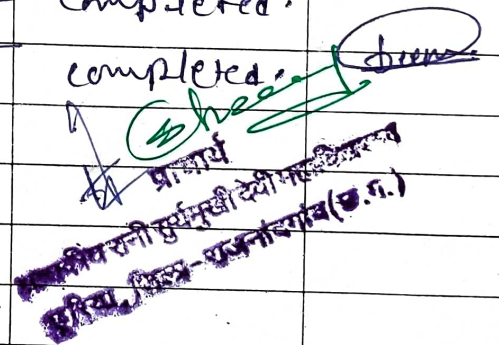 completed.
completed.
प्राचार्य
शासकीय रानी सुर्यमुखी देवी महाविद्यालय
छुरिया, जिला - राजनांदगांव (छ.ग.)